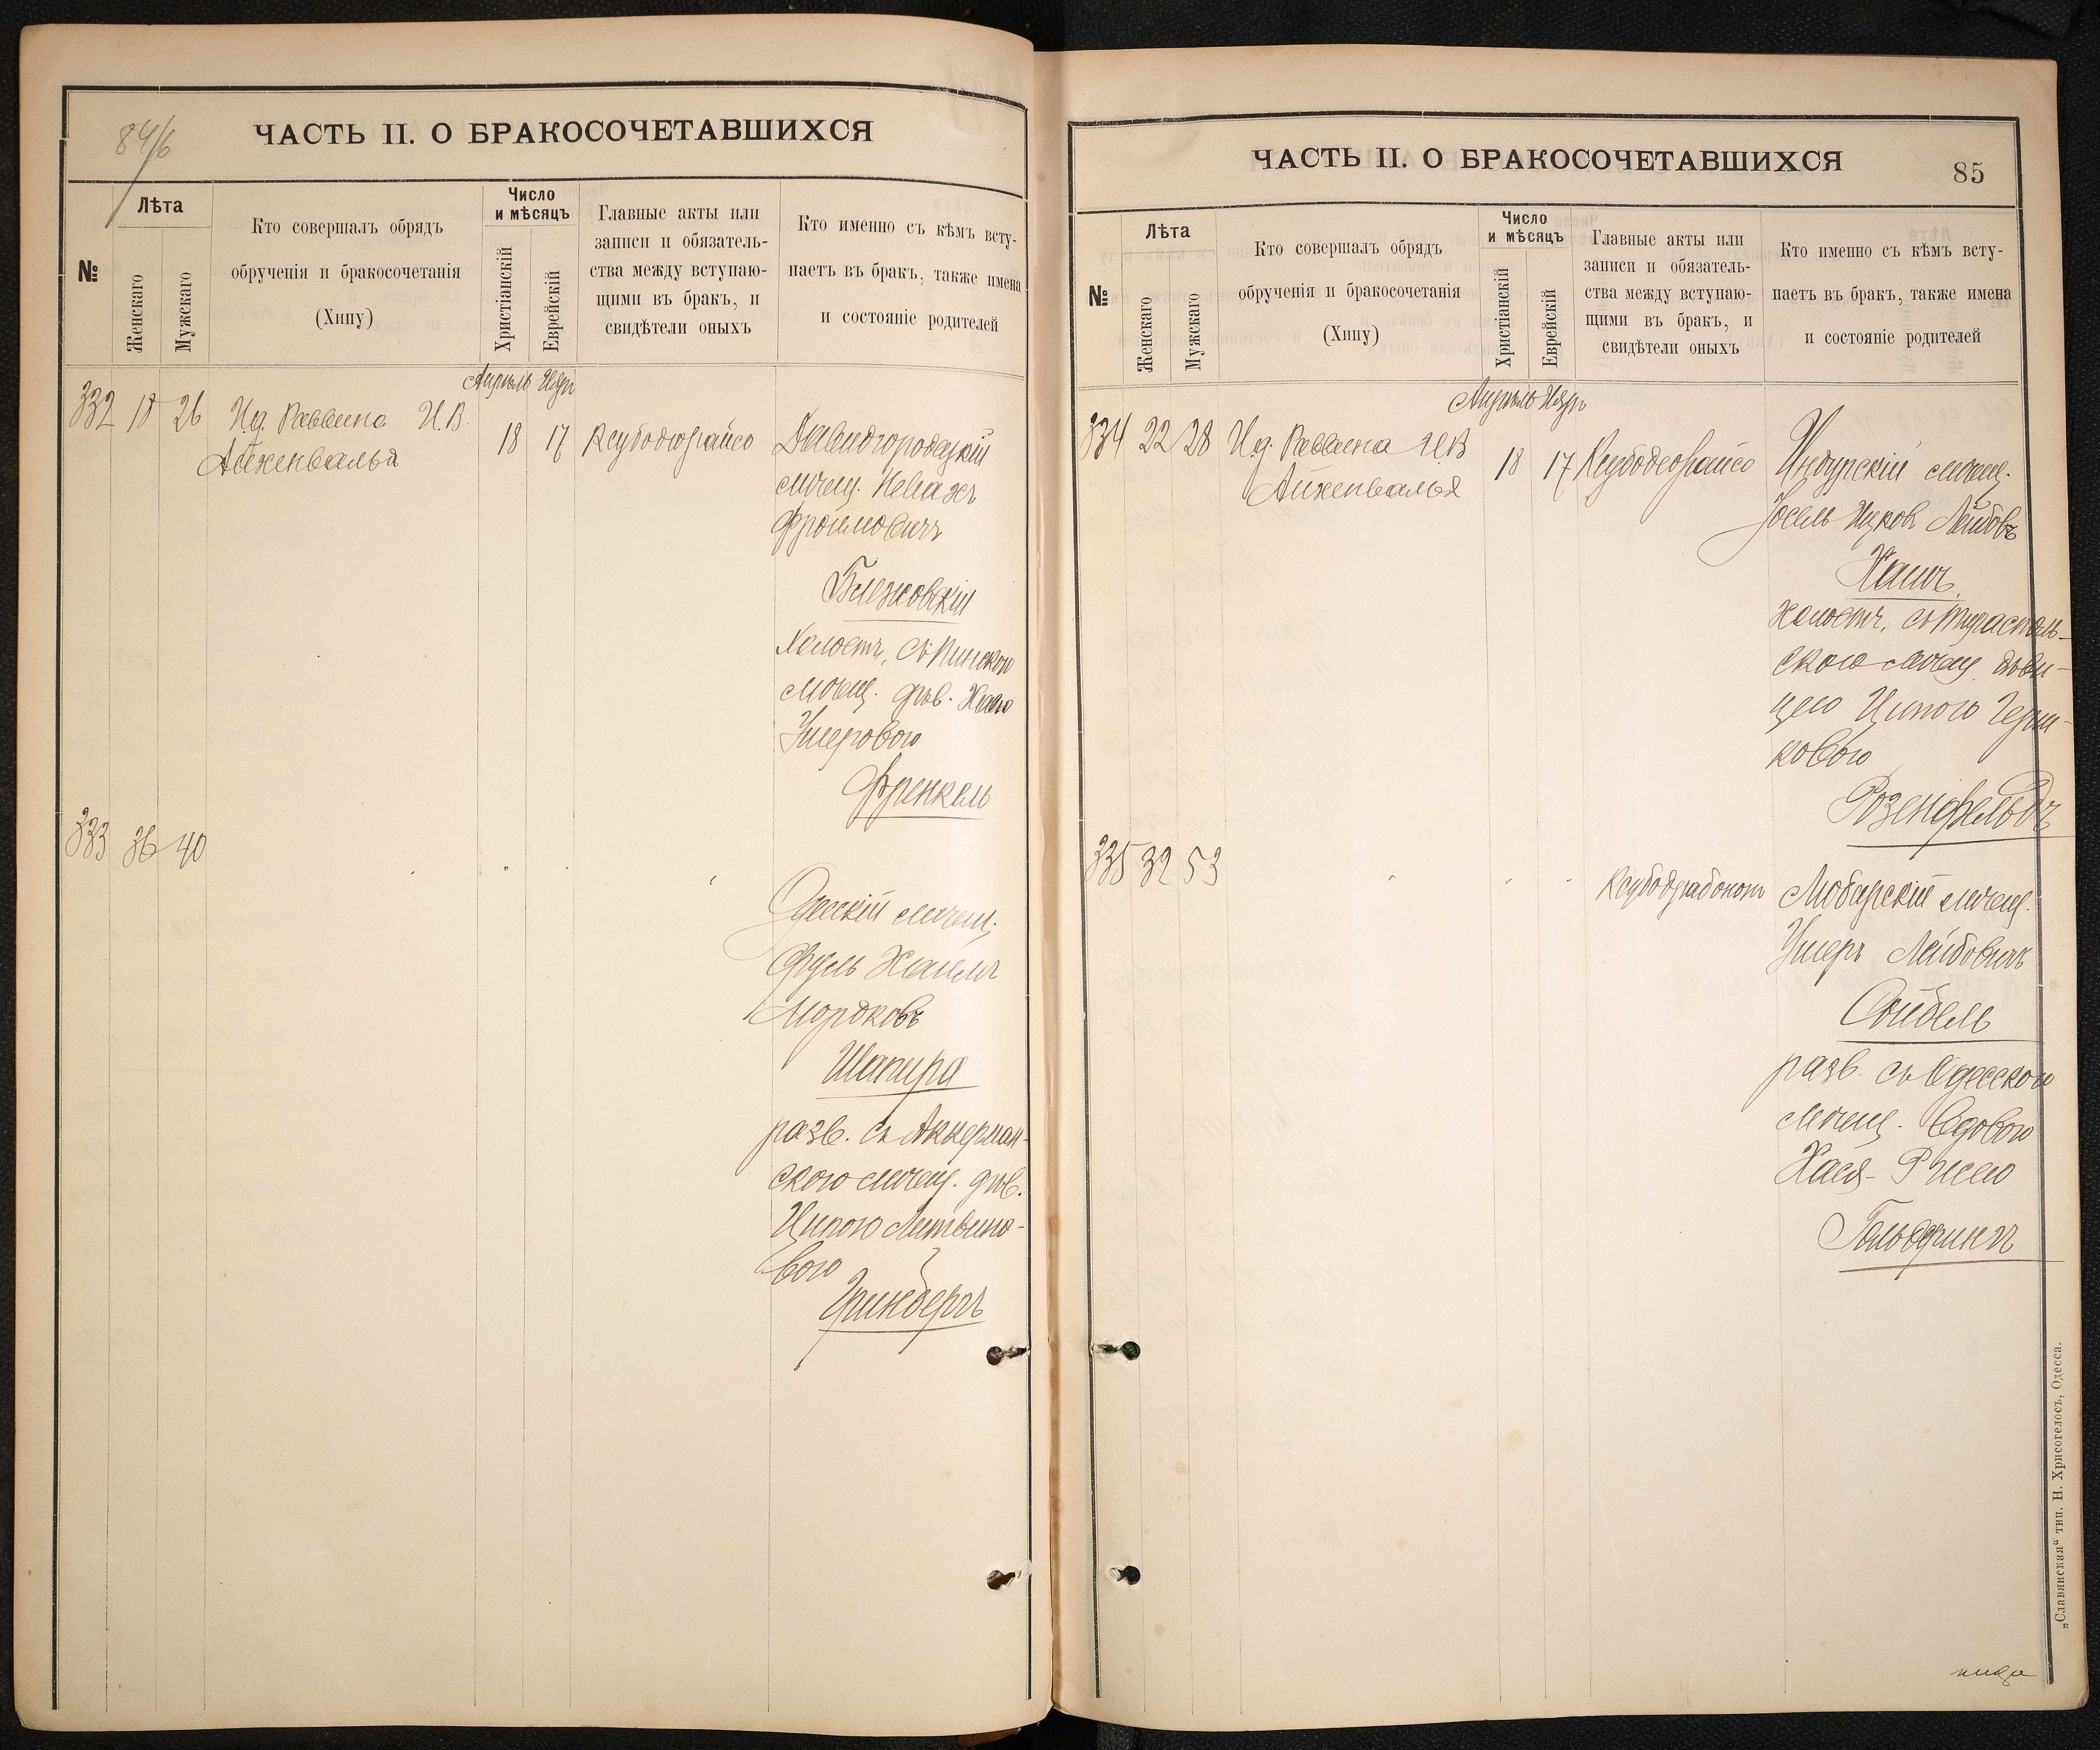 84/б
ЧАСТЬ II. О БРАКОСОЧЕТАВШИХСЯ
№
Лѣта
Женскаго
Мужскаго
Кто совершалъ обрядъ
обрученія и бракосочетанія
(Хипу)
Число
и мѣсяцъ
Христіанскій
Еврейскій
Главные акты или
записи и обязатель-
ства между вступаю-
щими въ бракъ, и
свидѣтели оныхъ
Кто именно съ кѣмъ всту-
паетъ въ бракъ, также имена
и состояніе родителей
Апрѣль Ияръ
332 18 26 И.д. Раввина И.В.
Айхенвальд
18 17
Давидгородецкій
мѣщ.
Фроимовичъ
Блежовскій
Холостъ, съ Пинскою
мѣщ. дѣв. Хаею
Ушеровою
Френкель
333 36 40
Одесскій мѣщ.
Фуль Хаимъ
Мордковъ
Шапира
разв. съ Аккерман-
скою мѣщ. дѣв.
Ципою Литвино-
вою
Гринбергъ
ЧАСТЬ II. О БРАКОСОЧЕТАВШИХСЯ
85
№
Лѣта
Женскаго
Мужскаго
Кто совершалъ обрядъ
обрученія и бракосочетанія
(Хипу)
Число
и мѣсяцъ
Христіанскій
Еврейскій
Главные акты или
записи и обязатель-
ства между вступаю-
щими въ бракъ, и
свидѣтели оныхъ
Кто именно съ кѣмъ всту-
паетъ въ бракъ, также имена
и состояніе родителей
Апрѣль Ияръ
334 22 28 И.д. Раввина И.В.
Айхенвальд
18 17
Индурскій мѣщ.
Іосель Ицков Лейбовъ
холостъ, съ Тирасполь-
скою мѣщ. дѣви-
цею Ципою Герш-
ковою
Розенфельдъ
335 32 53
мѣщ.
Ушеръ Лейбовичъ
Сойбель
разв. съ Одесскою
мѣщ. вдовою
Хая-Рисею
Гольдрингъ
„Славянская“ тип. Н. Хрисогелосъ, Одесса.